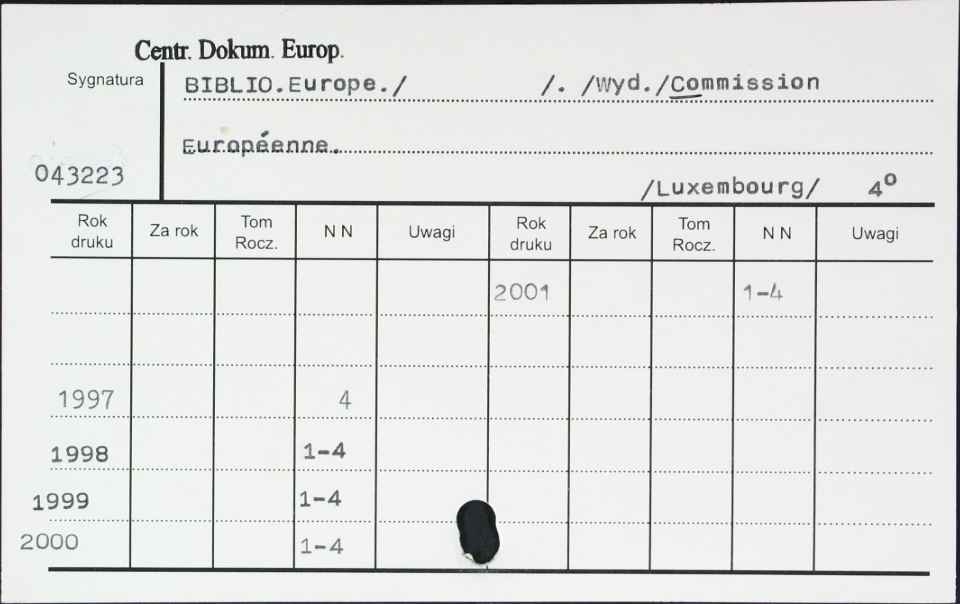 Centr. Dokum. Europ.
Sygnatura
BIBLIO.Europe./ /. /Wyd./Commission
Européenne.
043223
/Luxembourg/ 4º
Rok druku Za rok Tom Rocz. N N Uwagi Rok druku Za rok Tom Rocz. N N Uwagi
2001 1-4
1997 4
1998 1-4
1999 1-4
2000 1-4